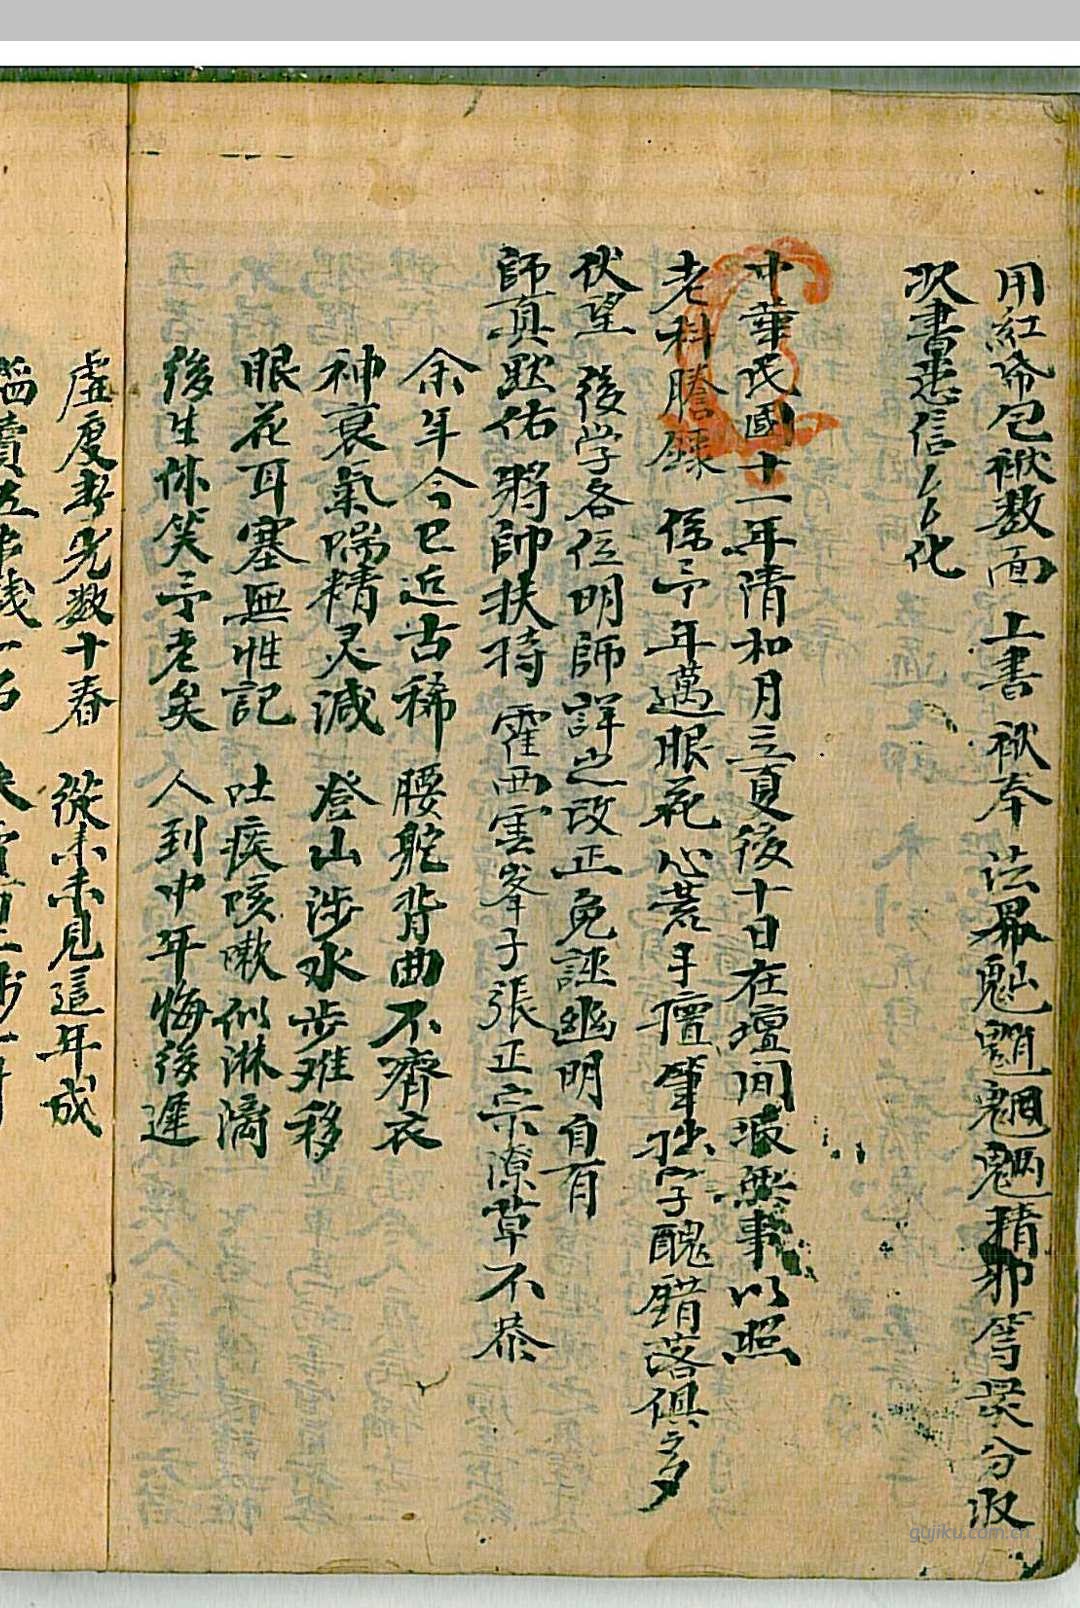 用紅布包袱数面上書袱奉法界魁魈魍魎精邪等眾分收
次書患信ムム化
中華民國十一年隋和月三夏後十日在壇间波無事以照
老科謄錄 係予年邁眼花心荒手擅筆拙字醜錯落俱多
伏望 後学各位明師詳之改正免誣幽明自有
師真默佑將帥扶持 霍西雲峯子張正宗潦草不恭
余年今已近古稀 腰舵背曲不齊衣
神衰氣喘精灵減 登山涉水步难移
眼花耳塞無性記 吐痰咳嗽似淋漓
後生休笑予老矣 人到中年悔後遲
虛度春光数十春 從未未見這年成
gujiku.com.cn